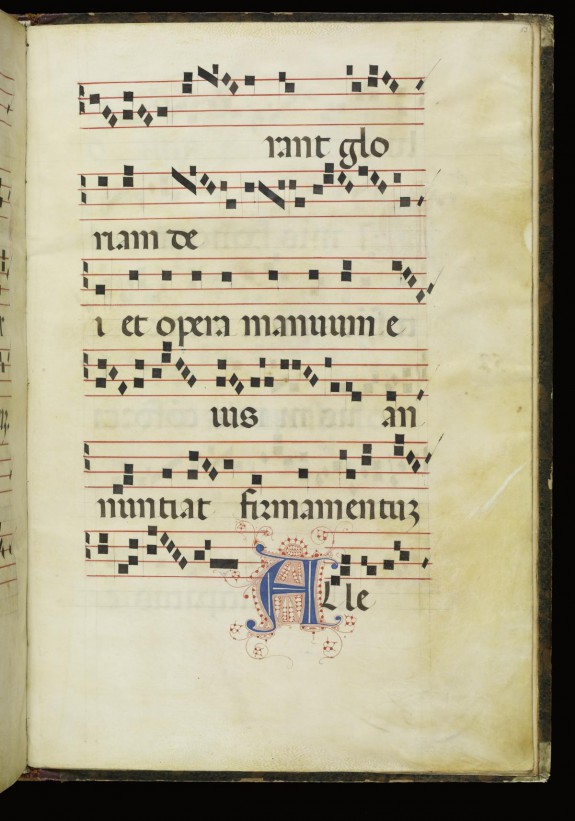 rant glo
riam de
i et opera manuum e
ius an
nuntiat firmamentuʒ
Alle